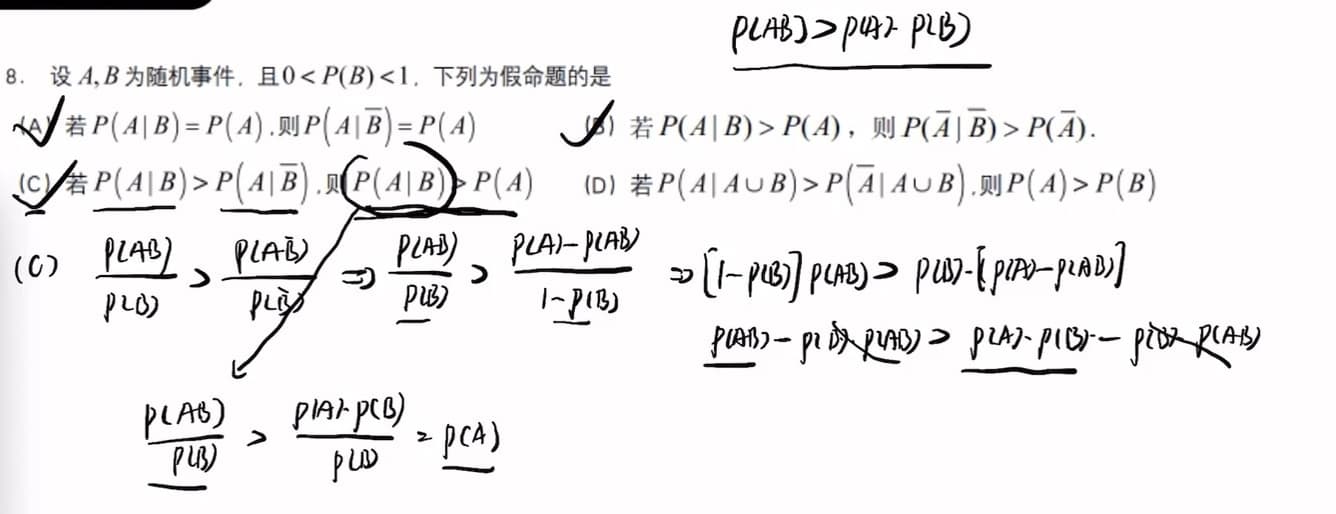 P(AB)>P(A)·P(B)
8. 设 A, B 为随机事件，且0 < P(B) < 1，下列为假命题的是
(A) 若 P(A|B) = P(A) .则 P(A|B̅) = P(A) (B) 若 P(A|B) > P(A)，则 P(A̅|B̅) > P(A̅).
(C) 若 P(A|B) > P(A|B̅) .则 P(A|B) > P(A) (D) 若 P(A|A∪B) > P(A̅|A∪B) .则 P(A) > P(B)
(C) P(AB)/P(B) > P(AB̅)/P(B̅) ⇒ P(AB)/P(B) > P(A)-P(AB)/1-P(B) ⇒ [1-P(B)] P(AB) > P(B)·[P(A)-P(AB)]
P(AB) - P(B)·P(AB) > P(A)·P(B) - P(B)·P(AB)
P(AB)/P(B) > P(A)·P(B)/P(B) = P(A)